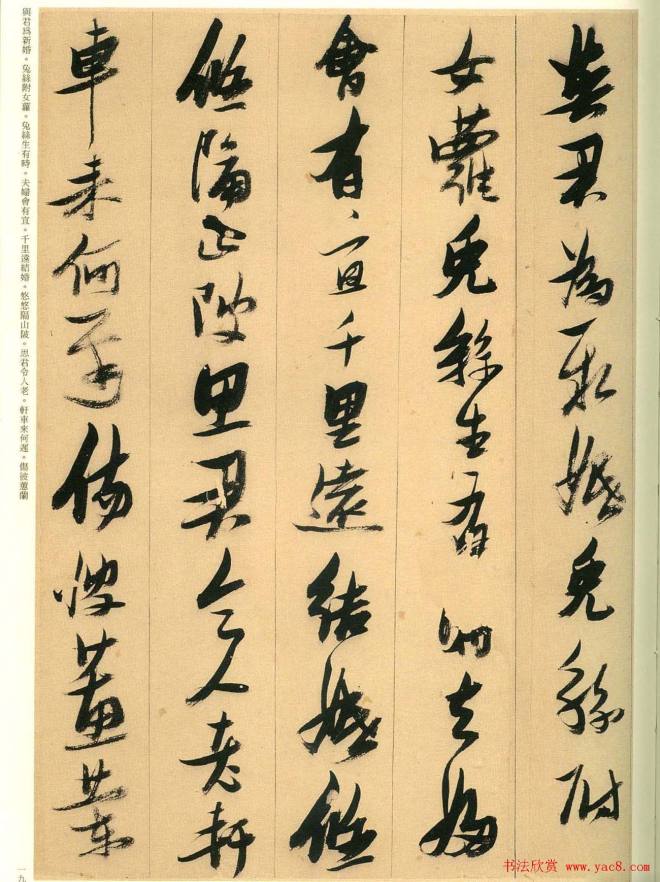 與君為新婚兔絲附
女蘿兔絲生有時夫婦
會有宜千里遠結婚悠
悠隔山陂思君令人老軒
車來何遲傷彼蕙蘭
與君爲新婚。兔絲附女蘿。兔絲生有時。夫婦會有宜。千里遠結婚。悠悠隔山陂。思君令人老。軒車來何遲。傷彼蕙蘭
一九
书法欣赏 www.yac8.com